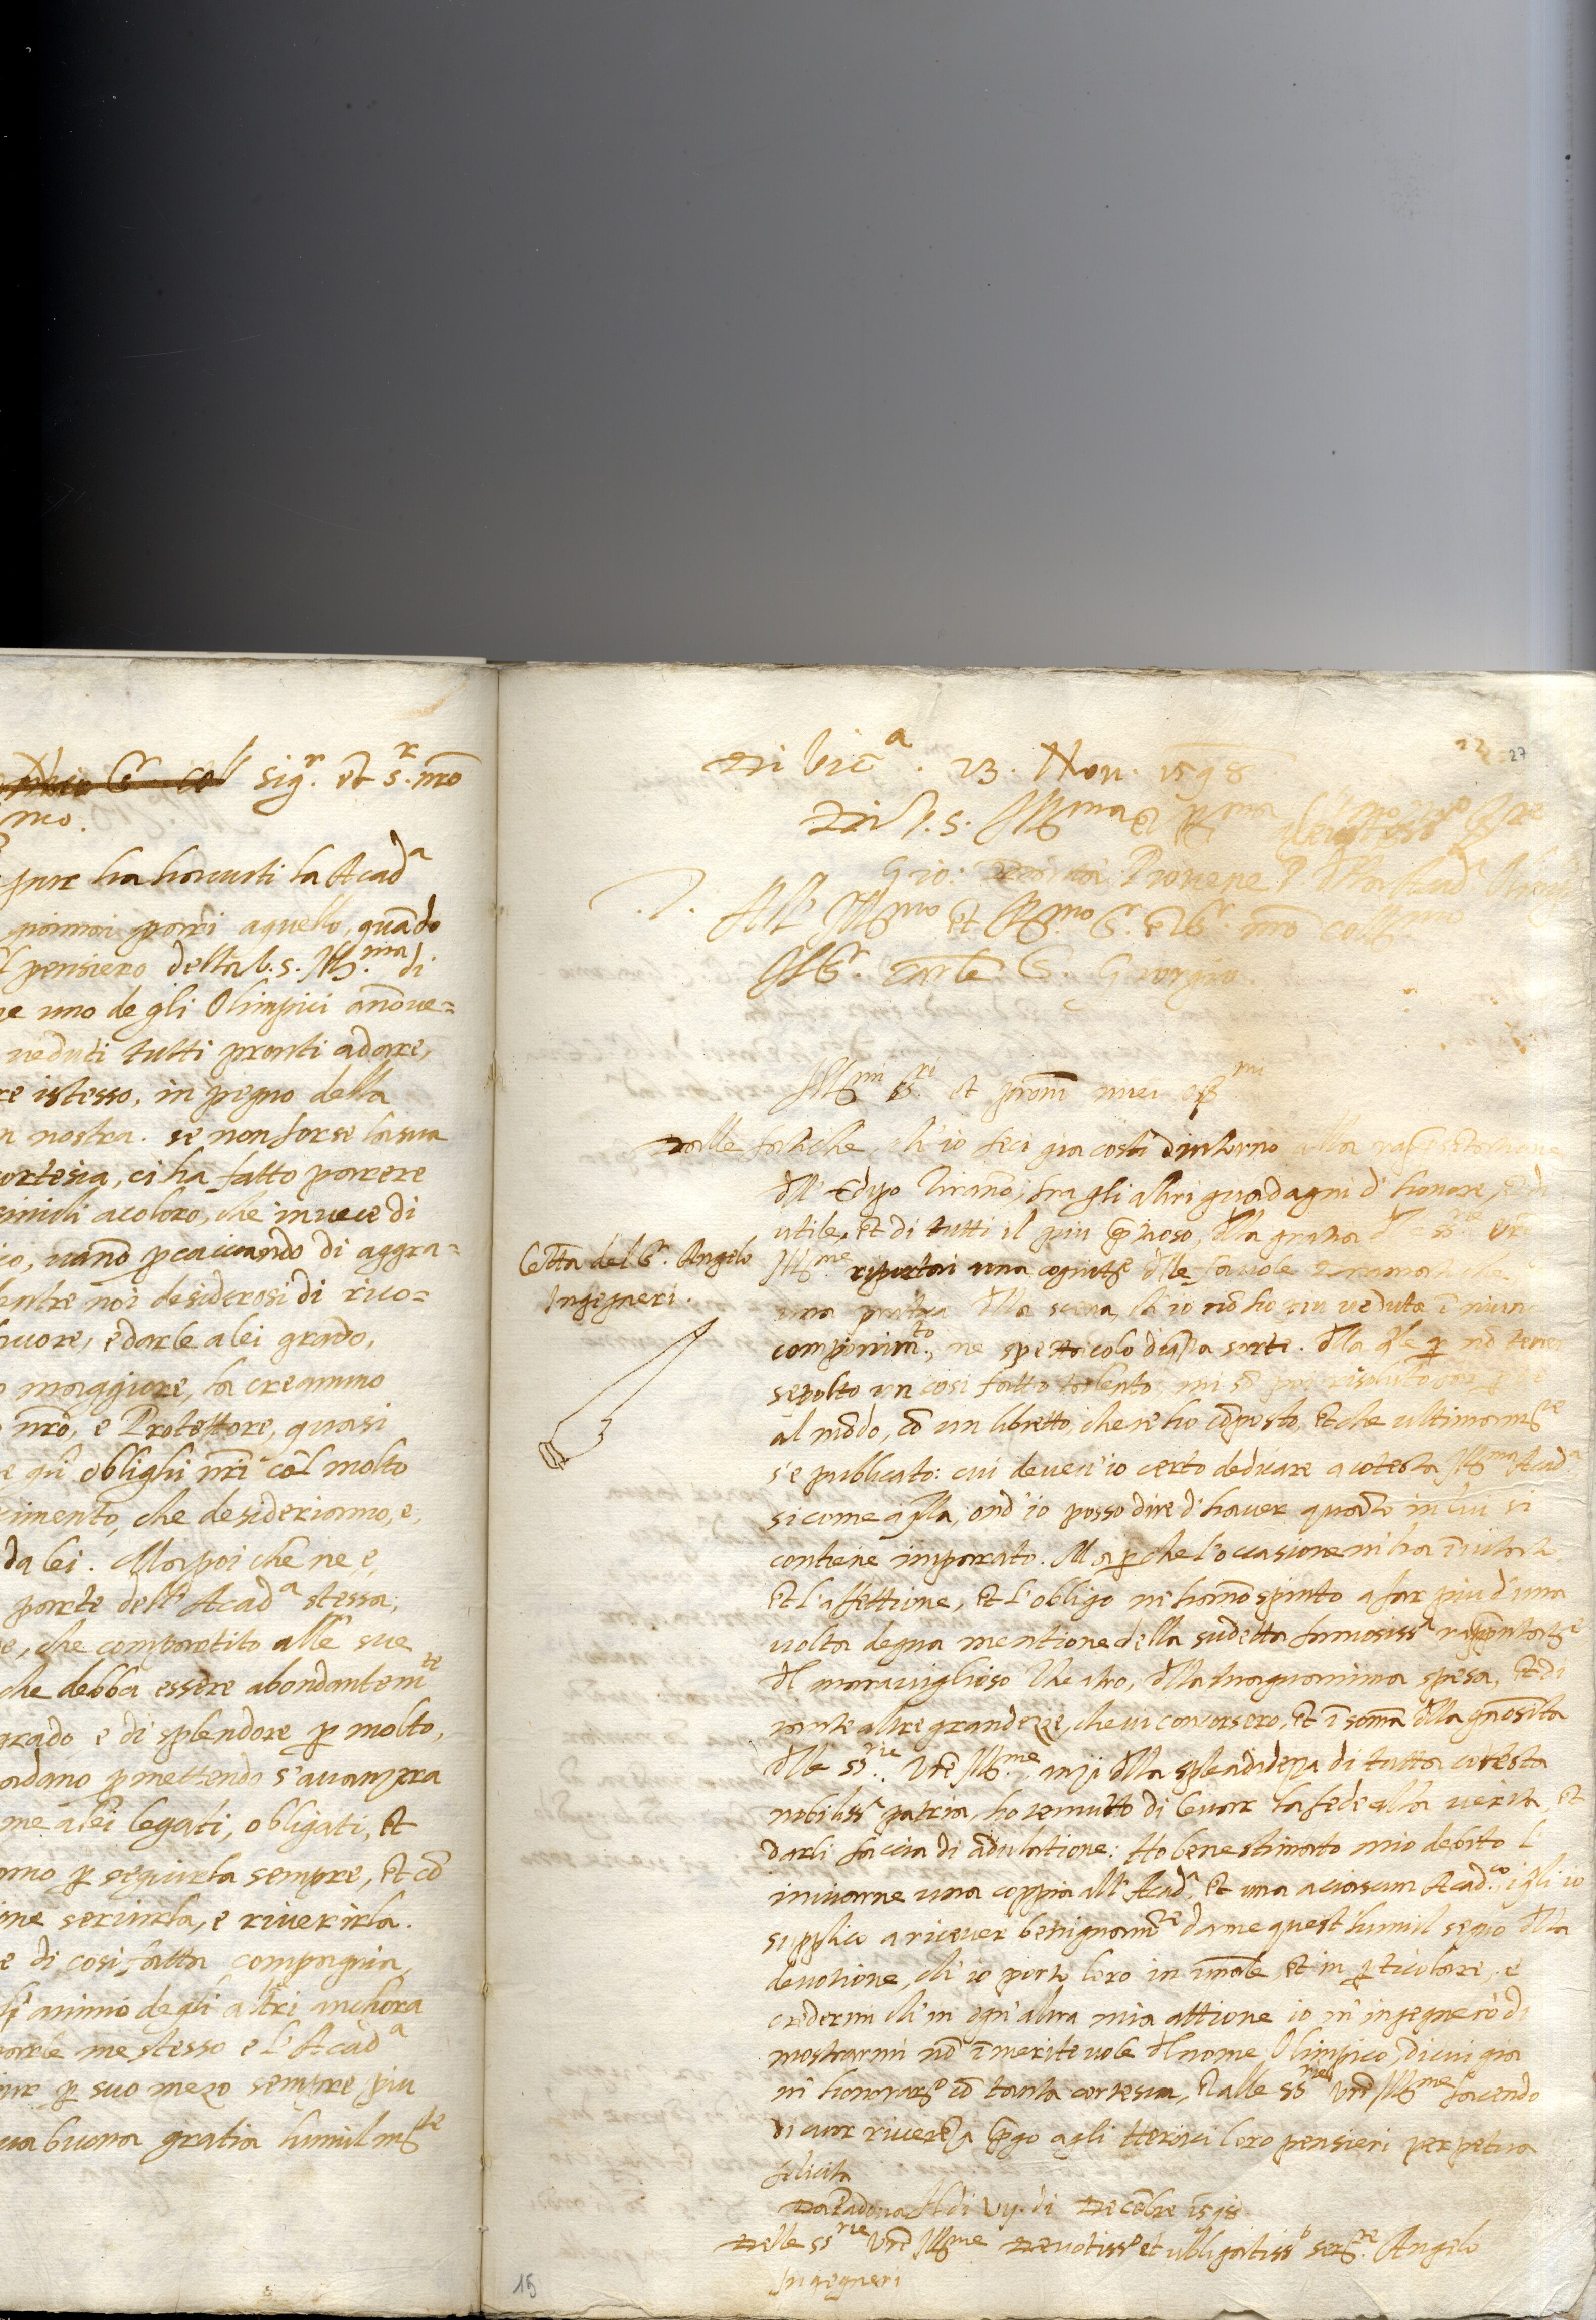 Sig.r et s.r nro
mo.
pur ha hauuti la Acad.a
giamai parri a quello, quando
l pensiero della V.S. Ill.ma di
re uno de gli Olimpici anoue=
ueduti tutti pronti a dare,
re istesso, in pegno della
n nostra. se non forse la sua
cortesia, ci ha fatto parere
simili a coloro, che in uece di
co, uano pcacciando di aggra=
entre noi desiderosi di rico=
uore, e darle a lei grado,
o maggiore, la creammo
nro, e Protettore, quasi
e gli oblighi nri col molto
rimento, che desideriamo, e,
da lei. Ma poi che ne e,
parte dell' Acad.a stessa,
e, che compartito alle sue
che debba essere abondantem.te
grado, e di splendore p molto,
adano pmettendo s'auampra
me a lei legati, obligati, et
amo p seguirla sempre, et co
ine seruirla, e riuerirla.
e di cosi fatta compagnia,
l' animo de gli altri anchora
darle me stesso e l' Acad.a
p suo mezo sempre piu
ua buona gratia humilm.te
22 27
Di Vic.a 23. Nou. 1598
Di V.S. Ill.ma et R.ma
Gio: Prouene P. dlla Acad.a
All' Ill.mo et R.mo S.r et S.r nro coll.mo
Il S.r Carle S. Giorgio
Ill.mi ss.ri et proni miei oss.mi
Dalle fatiche, ch' io feci gia costi d'intorno alla
dll' Edipo Tirano, fra gli altri guadagni d' honore, et di
utile, et di tutti il piu ptioso, dlla gratia dlle ss.rie Vre
Lettra del S.r Angelo
Ingegneri.
Ill.me riportai una cognit.e dlle fauole Dramatiche
una pratica dlla scena, ch' io no ho piu ueduta i niun
componim.to, ne spettacolo di qsta sorte. dlla qle p no tener
sepolto un cosi fatto talento, mi so poi risoluto
al modo, co un libretto, che n' ho coposto, et che ultimam.te
s' e publicato: cui deueu' io certo dedicare a cotesta Ill.ma Acad.a
si come a qlla, ond' io posso dire d' hauer quato in lui si
contiene imparato. Ma p che l' occasione m' ha inuitato
et l' affettione, et l' obligo m' hano spinto a far piu d' una
uolta degna mentione della sudetta famosiss.a rapsentat.e
dl marauiglioso Theatro, dlla magnanima spesa, et di
tante altre grandezze, che ui concorsero, et i soma dlla gnosita
dlle ss.rie Vre Ill.me, anzi dlla splendidezza di tutta cotesta
nobiliss.a patria, ho temuto di leuar la fede alla uerita, et
darli faccia di adulatione: Ho bene stimato mio debito l'
inuiarne una coppia all' Acad.a et una a ciascun Acad.co i qli io
supplico a riceuer benignam.te da me quest' humil segno dlla
deuotione, ch' io porto loro in unale, et in pticolare, e
credermi ch' in ogn' altra mia attione io m' ingegnero di
mostrarmi no imeriteuole dl nome Olimpico, di cui gia
m' honoraro co tanta cortesia, et alle ss.rie Vre Ill.me facendo
di cuor riuereza pgo agli Heroici loro pensieri perpetua
felicita
Da Padoua il di Vij. di Decebre 1598
Delle ss.rie Vre Ill.me Deuotiss.o et obligatiss.o ser.re Angelo
Ingegneri
15